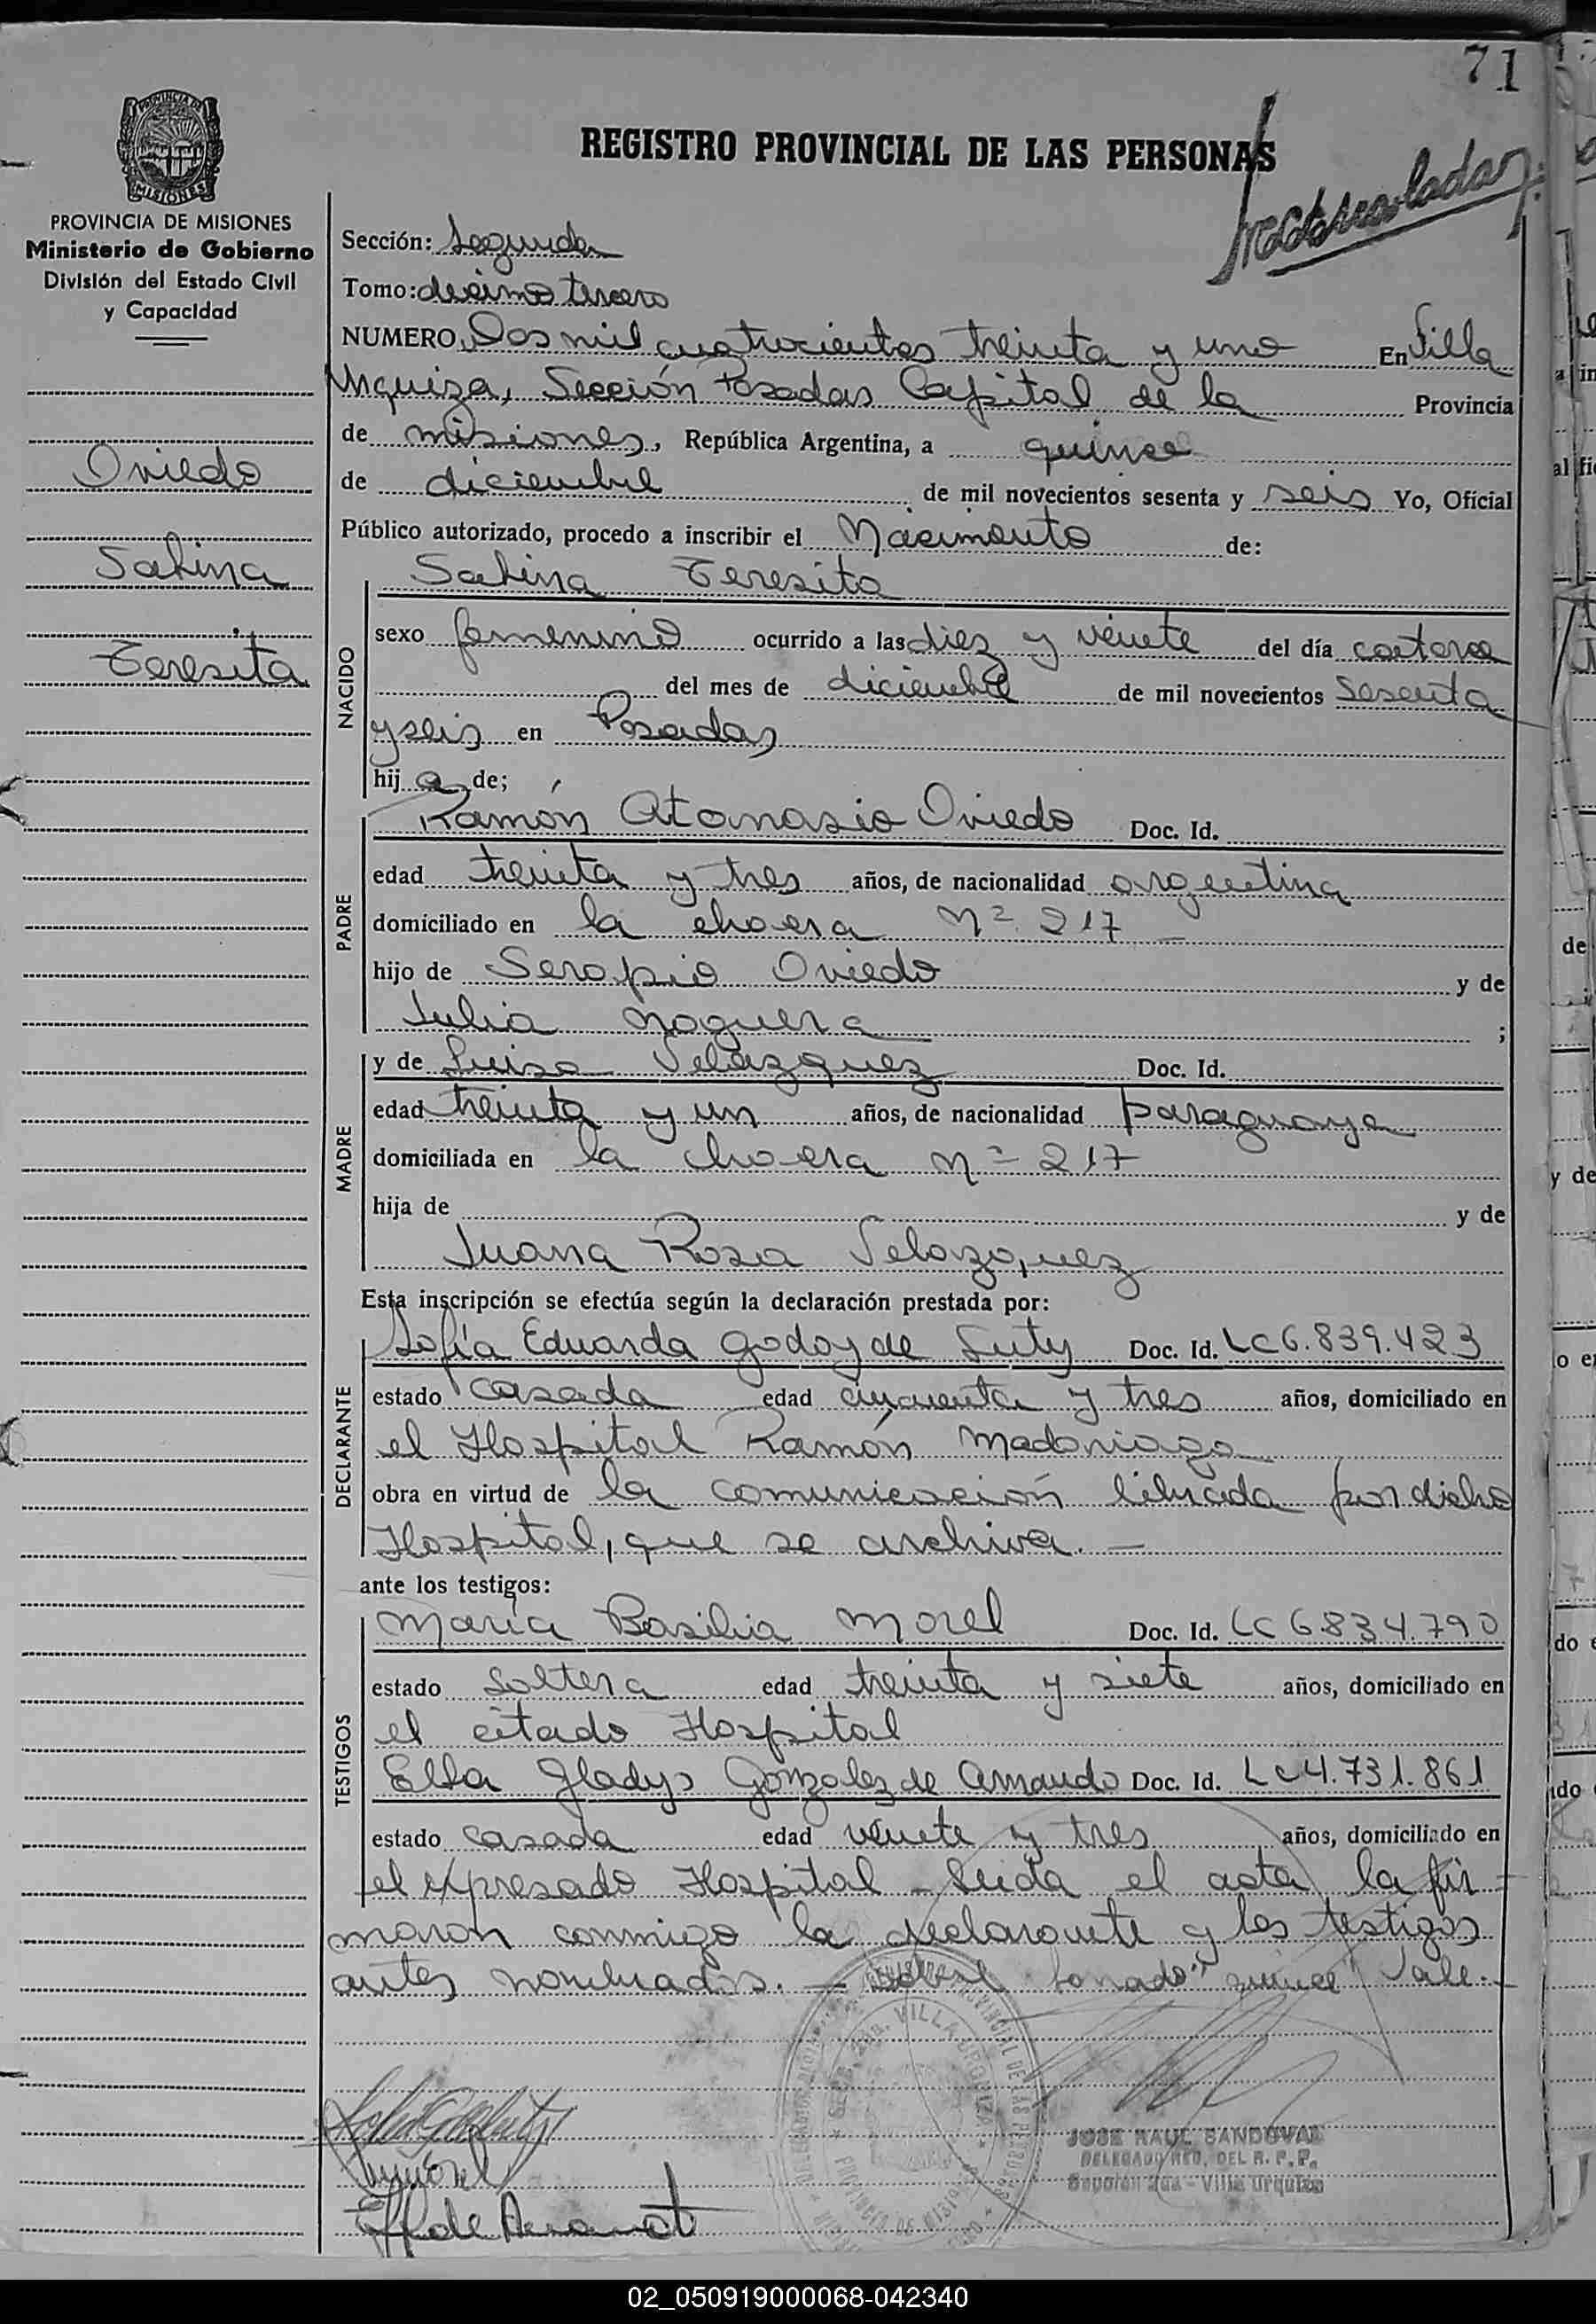 71
REGISTRO PROVINCIAL DE LAS PERSONAS
PROVINCIA DE MISIONES
Ministerio de Gobierno
División del Estado Civil
y Capacidad
Oviedo
Sabina
Teresita
Sección: Segunda
Tomo: decimo tercero
NUMERO Dos mil cuatrocientos treinta y uno En Villa
Urquiza, Sección Posadas Capital de la Provincia
de misiones, República Argentina, a quince
de diciembre de mil novecientos sesenta y seis Yo, Oficial
Público autorizado, procedo a inscribir el Nacimiento de:
Sabina Teresita
NACIDO
sexo femenino ocurrido a las diez y veinte del día catorce
del mes de diciembre de mil novecientos sesenta
y seis en Posadas
hija de;
PADRE
Ramón Atanasio Oviedo Doc. Id.
edad treinta y tres años, de nacionalidad argentina
domiciliado en la chacra Nº 217
hijo de Serapio Oviedo y de
Julia Noguera ;
MADRE
y de Luisa Velázquez Doc. Id.
edad treinta y un años, de nacionalidad paraguaya
domiciliada en la chacra nº 217
hija de y de
Juana Rosa Velazquez
Esta inscripción se efectúa según la declaración prestada por:
DECLARANTE
Sofía Eduarda Godoy de Luty Doc. Id. LC 6.839.423
estado casada edad cincuenta y tres años, domiciliado en
el Hospital Ramón Madariaga
obra en virtud de la comunicación librada por dicho
Hospital, que se archiva. —
ante los testigos:
TESTIGOS
María Basilia Morel Doc. Id. LC 6834.790
estado soltera edad treinta y siete años, domiciliado en
el citado Hospital
Elsa Gladys Gonzalez de Amando Doc. Id. LC 4.731.861
estado casada edad veinte y tres años, domiciliado en
el expresado Hospital - Leida el acta la fir-
maron conmigo la declarante y los testigos
antes nombrados. — sobre borrado "quince" Vale.-
JOSE RAUL SANDOVAL
DELEGADO DEL R. P. P.
Sección 2da - Villa Urquiza
02_050919000068-042340